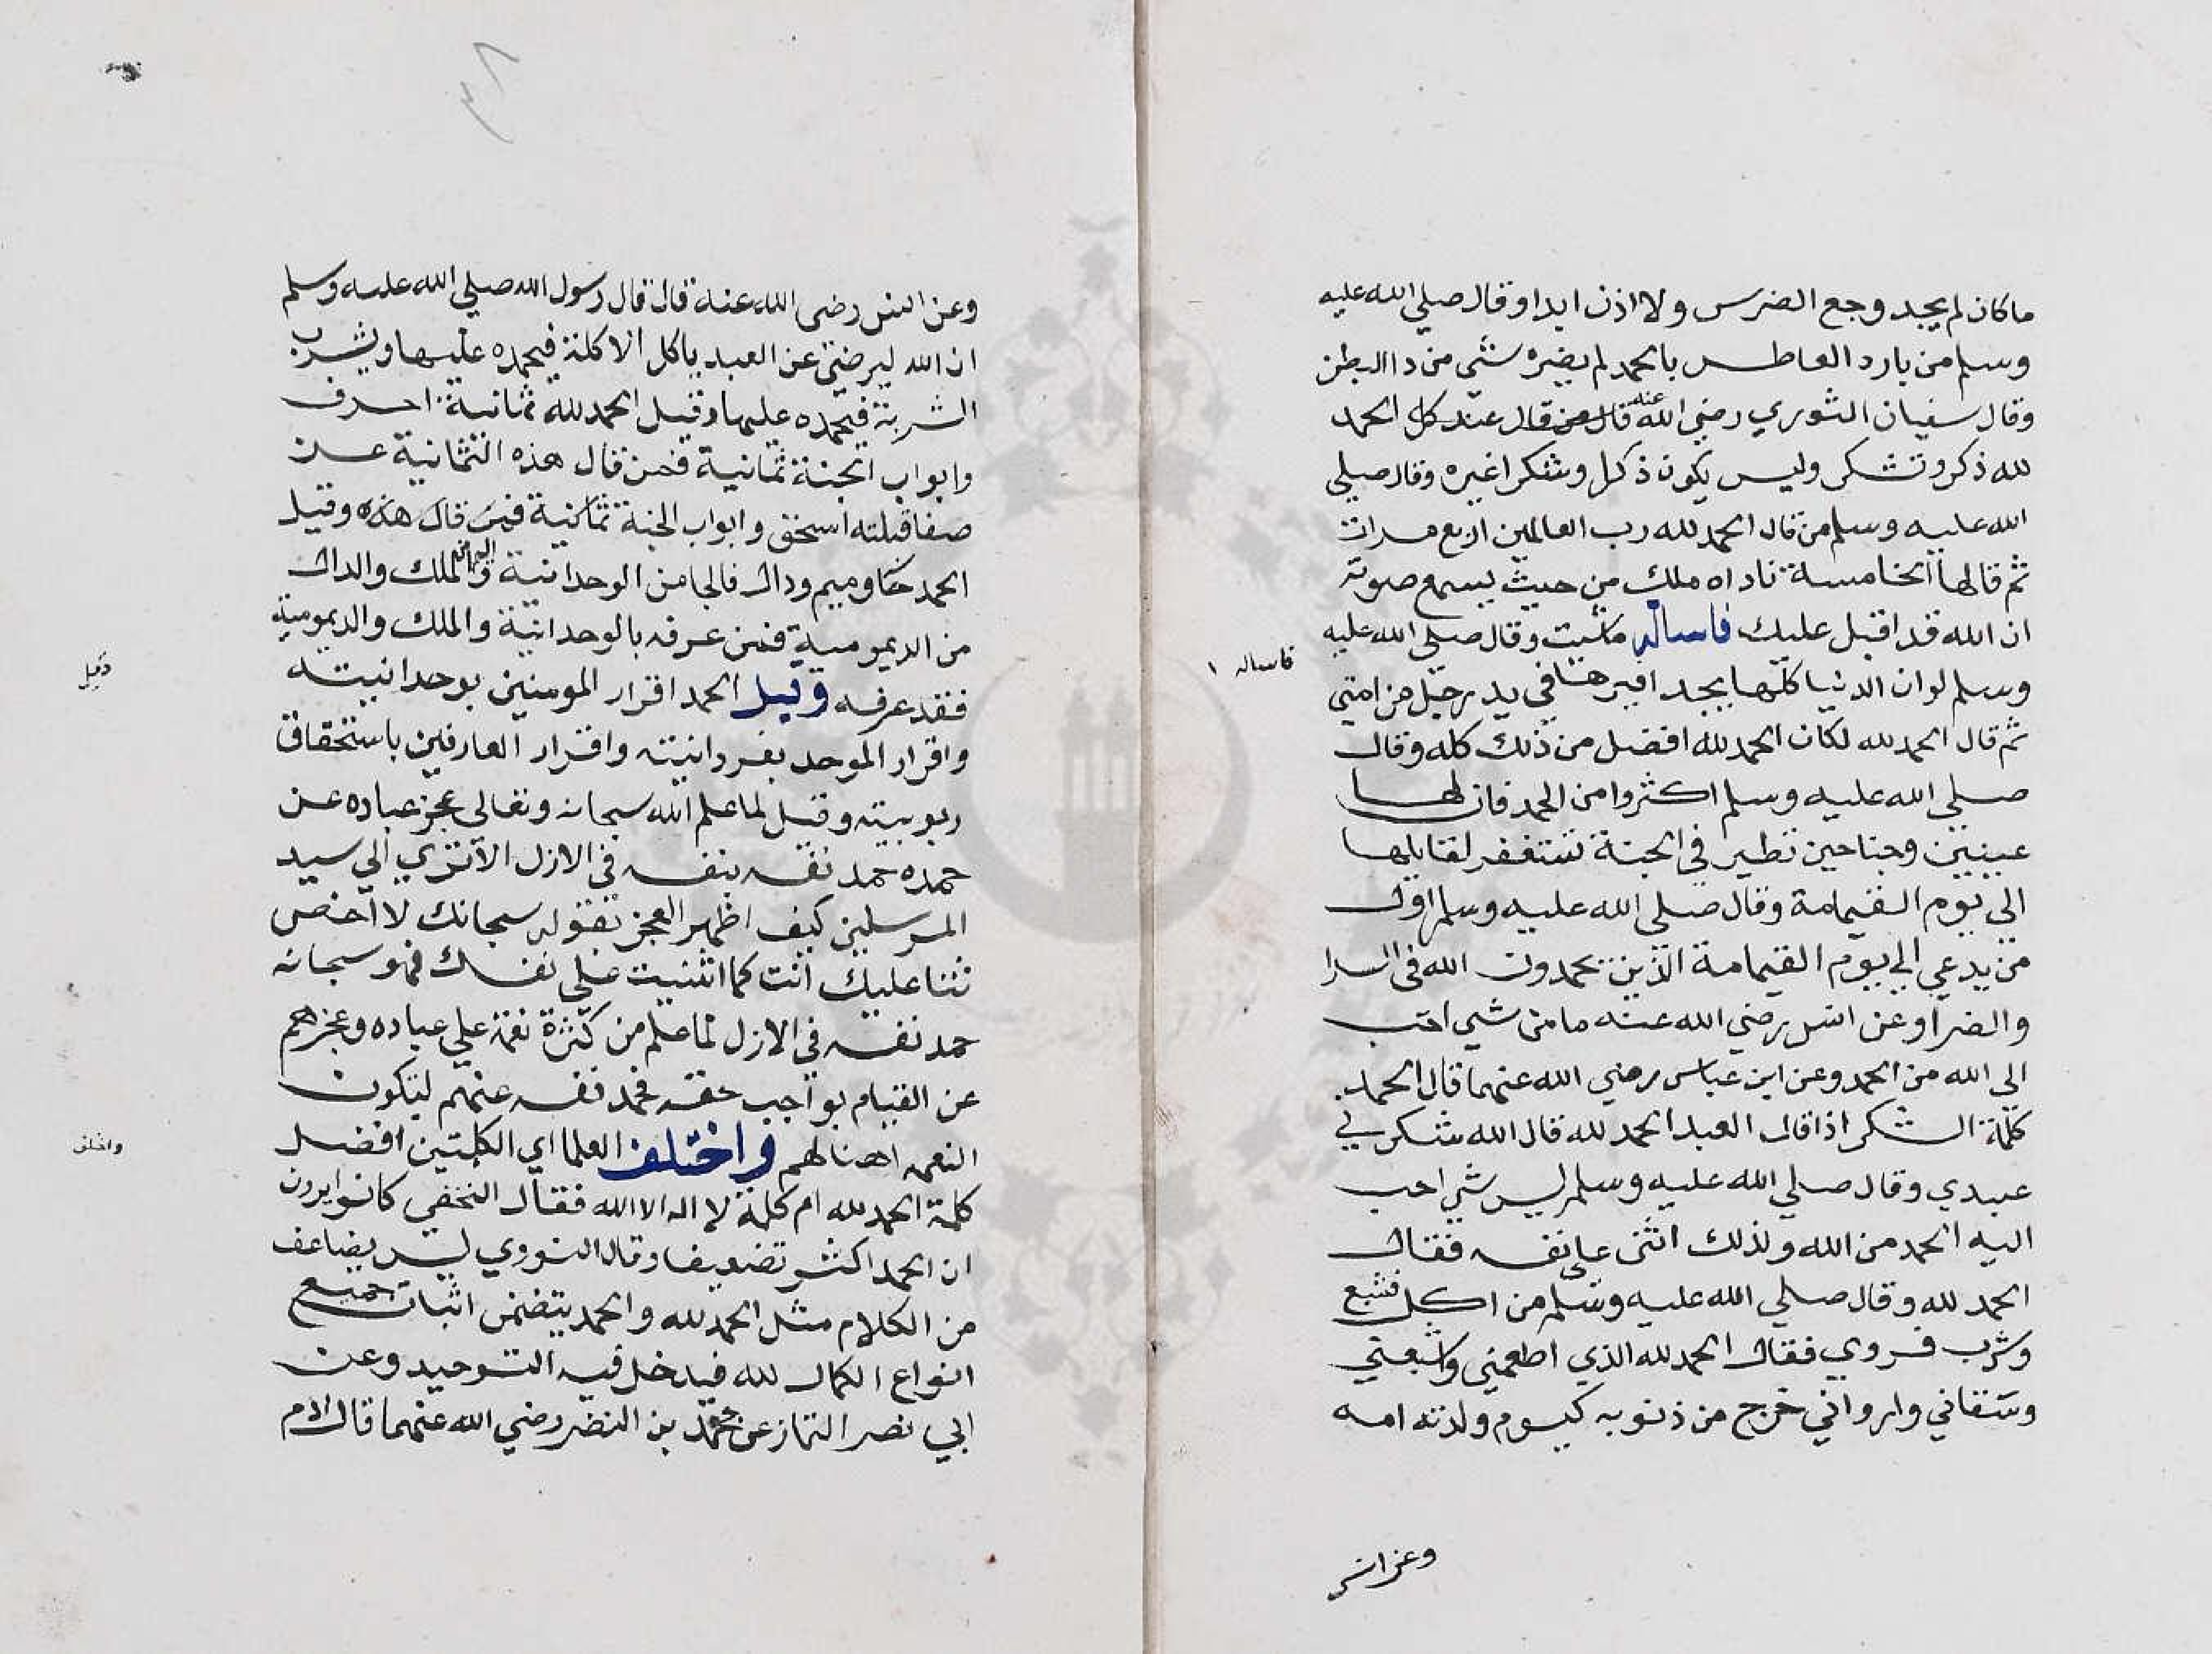 ماكان لم يجد وجع الضرس ولا اذن ابدا وقال صلي الله عليه
وسلم من بارد العاطس بالحمد لم يضره شي من دا البطن
وقال سفيان الثوري رضي الله عنه قال من قال عند كل الحمد
لله ذكر وتشكر وليس يكون ذكرا وشكرا غيره وقال صلي
الله عليه وسلم من قال الحمد لله رب العالمين اربع مرات
ثم قالها الخامسة ناداه ملك من حيث يسمع صوته
ان الله قد اقبل عليك فاساله ماشيت وقال صلي الله عليه
فاساله ١
وسلم لو ان الدنيا كلها بحد افيرها في يد رجل من امتي
ثم قال الحمد لله لكان الحمد لله افضل من ذلك كله وقال
صلي الله عليه وسلم اكثروا من الحمد فان لها
عينين وجناحين تطير في الجنة تستغفر لقايلها
الي يوم القيمامة وقال صلي الله عليه وسلم اول
من يدعي الي يوم القيمامة الذين يحمدون الله في السرا
والضرا وعن انس رضي الله عنه ما من شي احب
الي الله من الحمد وعن ابن عباس رضي الله عنهما قال الحمد
كلمة الشكر اذا قال العبد الحمد لله قال الله شكرني
عبدي وقال صلي الله عليه وسلم ليس شي احب
اليه الحمد من الله ولذلك اثني علي نفسه فقال
الحمد لله وقال صلي الله عليه وسلم من اكل فشبع
وشرب فروي فقال الحمد لله الذي اطعمني واشبعني
وسقاني وارواني خرج من ذنوبه كيوم ولدته امه
وعن انس
وعن انس رضي الله عنه قال قال رسول الله صلي الله عليه وسلم
ان الله ليرضي عن العبد ياكل الاكلة فيحمده عليها ويشرب
الشربة فيحمده عليها وقيل الحمد لله ثمانية احرف
وابواب الجنة ثمانية فمن قال هذه الثمانية عن
صفا قبلته استحق وابواب الجنة ثمانية فمن قال هذه وقيل
الحمد حا وميم ودال فالحا من الوحدانية والميم من الملك والدال
من الديمومية فمن عرفه بالوحدانية والملك والديمومية
فقد عرفه وقيل الحمد اقرار المومنين بوحدانيته
وقيل
واقرار الموحد بفردانيته واقرار العارفين باستحقاق
ربوبيته وقيل لما علم الله سبحانه وتعالي عجز عباده عن
حمده حمد نفسه بنفسه في الازل الا تري الي سيد
المرسلين كيف اظهر العجز بقوله سبحانك لا احصي
ثنا عليك انت كما اثنيت علي نفسك فهو سبحانه
حمد نفسه في الازل لما علم من كثرة نعمه علي عباده وعجزهم
عن القيام بواجب حقه فحمد نفسه عنهم لتكون
النعمه اهنا لهم واختلف العلما اي الكلمتين افضل
واختلف
كلمة الحمد لله ام كلمة لا اله الا الله فقال النخعي كانوا يرون
ان الحمد اكثر تضعيفا وقال النووي ليس يضاعف
من الكلام مثل الحمد لله والحمد يتضمن اثبات جميع
انواع الكمال لله فيدخل فيه التوحيد وعن
ابي نصر التمار عن محمد بن النضر رضي الله عنهما قال ادم